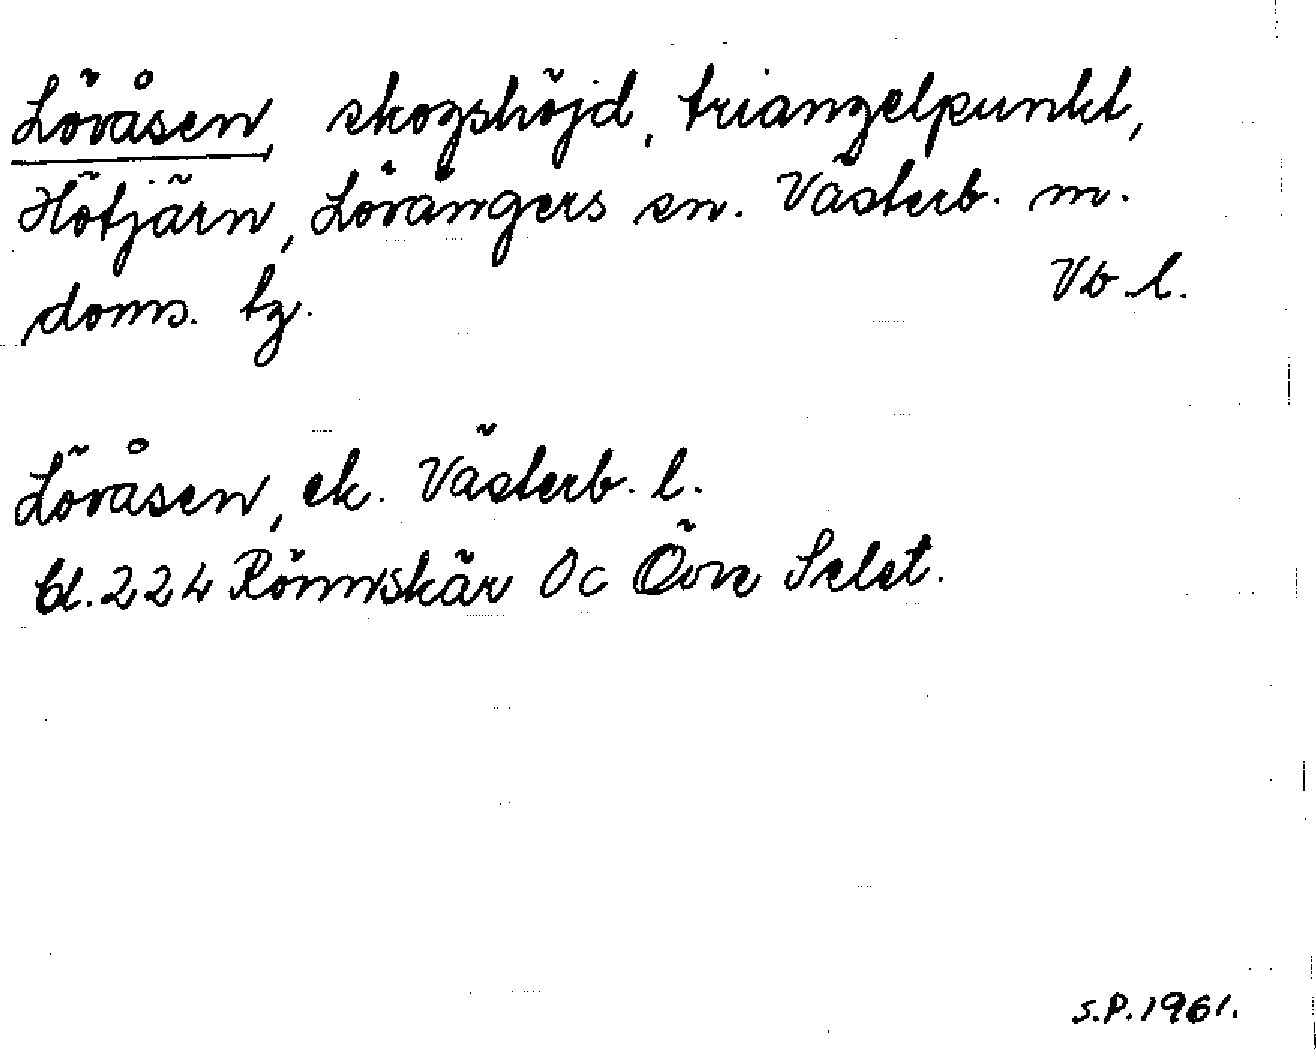 Lövåsen, skogshöjd, triangelpunkt,
Hötjärn, Lövångers sn. Västerb. m.
doms. tg. Vb l.
Lövåsen, ek. Västerb. l.
bl. 224 Rönnskär Oc Övre Selet.
S.P. 1961.